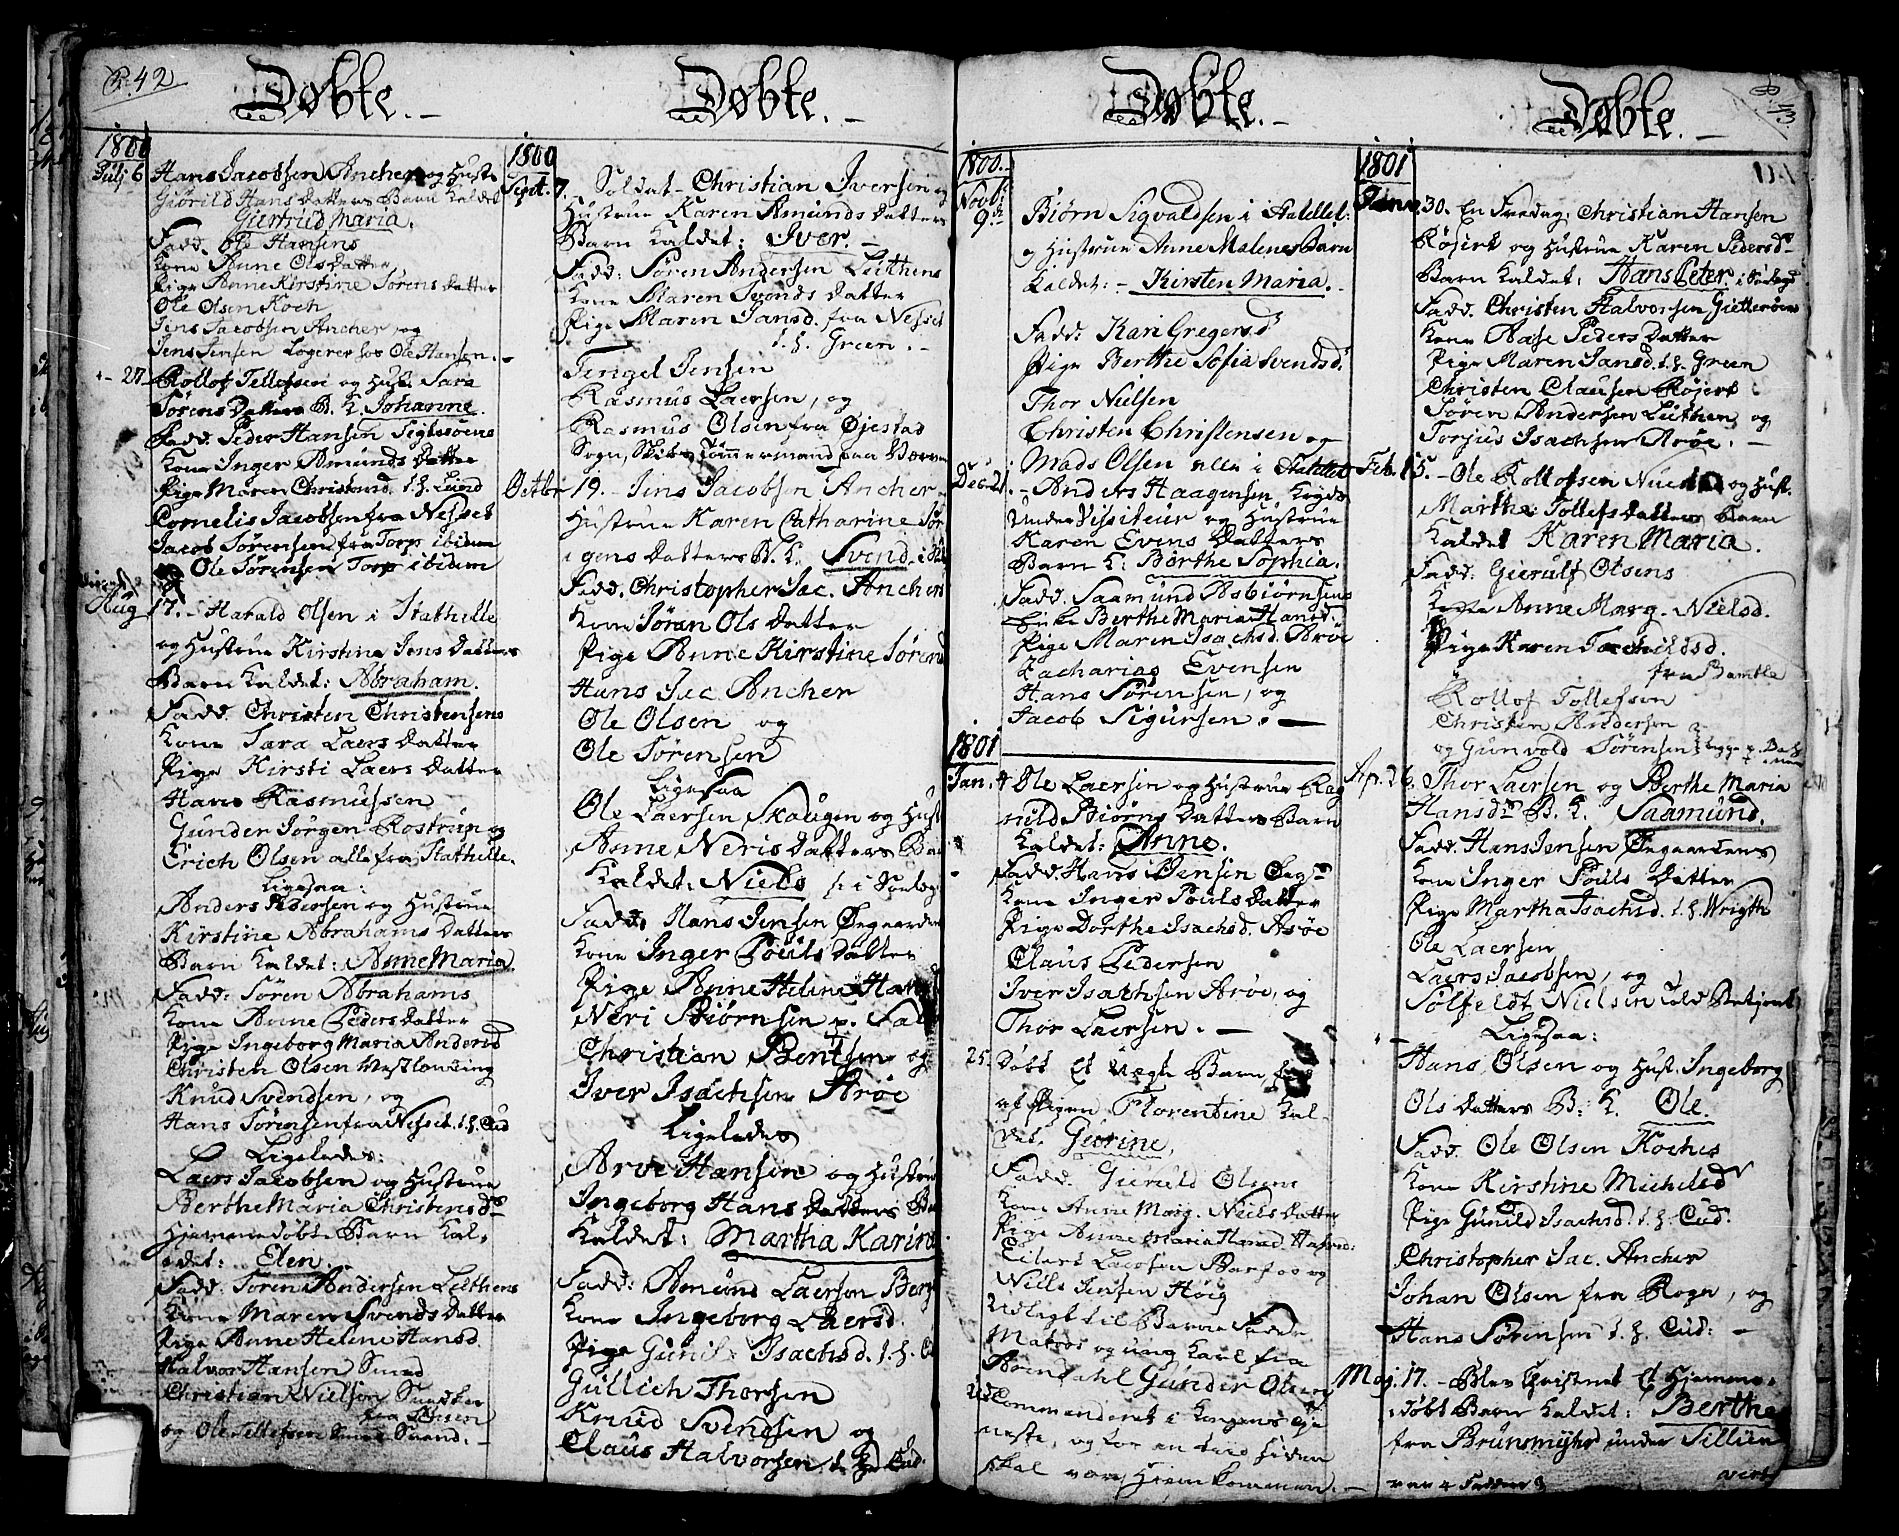 P. 42
Døbte.
1800
Julj 6 Hans Jacobsen Ancher og Hust.
Giørild Hans Datters Barn Kaldet
Giertrud Maria.
Fadd. Ole Hansens
Kone Anne Ols Datter
Pige Anne Kirstine Sørens Datter
Ole Olsen Koch
Jens Jacobsen Ancher, og
Jens Jensen Logerer hos Ole Hansen.
- 27 Rollof Tellefsen og Hust. Sara
Sørens Datters B. K. Johanne.
Fadd. Peder Hansen Sigtesøens
Kone Inger Amunds Datter
Pige Maren Christensd. t. h. Lund
Cornelis Jacobsen fra Nesset
Jacob Sørensen fra Torp ibidem
Ole Sørensen Torp ibidem
Aug 17. Harald Olsen i Stathelle
og Hustrue Kirstine Jens Datters
Barn Kaldet: Abraham.
Fadd. Christen Christensens
Kone Sara Laers Datter
Pige Kirsti Laers Datter
Hans Rasmussen
Gunder Jørgen Rostrup og
Erich Olsen alle fra Stathelle.
Ligesaa:
Anders Pedersen og Hustrue
Kirstine Abrahams Datters
Barn Kaldet: Anne Maria.
Fadd: Søren Abrahams
Kone Anne Peders Datter
Pige Ingeborg Maria Andersd
Christen Olsen Mostlonding
Knud Svendsen, og
Hans Sørensen fra Nesset t. h. Eud
Ligeledes:
Laers Jacobsen og Hustrue
Berthe Maria Christensds
Hjemmedøbte Barn Kal-
det: Elen.
Fadd: Søren Andersen Leithens
Kone Maren Svends Datter
Pige Anne Helene Hansd.
Halvor Hansen
Christian Nielsen
og Ole Tellefsen
Døbte.
1800
Sept. 7. Soldat Christian Iversen og
Hustrue Karen Amunds Datters
Barn Kaldet: Iver.
Fadd: Søren Andersen Leithens
Kone Maren Svends Datter
Pige Maren Jansd. fra Nesset
t. h. Green.
Tengel Jensen
Rasmus Laersen, og
Rasmus Olsen fra Øjestad
Sogn, Skibs Tømmermand paa
Octbr 19. Jens Jacobsen Ancher
Hustrue Karen Catharine Jør
gens Datters B. K. Svend
Fadd. Christopher Jac. Anchers
Kone Søran Ols Datter
Pige Anne Kirstine Sørend
Hans Jac Ancher
Ole Olsen og
Ole Sørensen
Ligesaa
Ole Laersen Skougen og Hust
Anne Neris Datters Ba
Kaldet: Niels
Fadd. Hans Jensen Øegaarden
Kone Inger Pouls Datter
Pige Anne Helene Hans
Neri Biørnsen
Christian Bentsen og
Iver Isachsen Arøe
Ligeledes
Arve Hansen og Hustrue
Ingeborg Hans Datters Ba
Kaldet: Martha Karine
Fadd: Amund Laersen Berg
Kone Ingeborg Laersd.
Pige Gunild Isachsd. t. h. Eu
Gullich Thorsen
Knud Svendsen og
Claus Halvorsen t. h. Eud.
Døbte.
1800.
Novb. 9. Biørn Sigvaldsen i Statellet
og Hustrue Anne Malenes Barn
Kaldet: Kirsten Maria.
Fadd: Kari Gregersd
Pige Berthe Sofia Svendsd.
Thor Nielsen
Christen Christensen og
Mads Olsen alle i Statellet
Dec. 21. Anders Haagensen Kongl.
Under Vissiteur og Hustrue
Karen Evens Datters
Barn K: Berthe Sophia.
Fadd. Saamund Asbiørnsens
Enke Berthe Maria Hansd.
Pige Maren Isachsd. Arøe
Zacharias Evensen
Hans Sørensen, og
Jacob Sigursen.
1801
Jan. 4 Ole Laersen og Hustrue Rag
nild Biørns Datters Barn
Kaldet: Anne.
Fadd. Hans Jensen Øeg
Kone Inger Pouls Datter
Pige Dorthe Isachsd. Arøe
Claus Pedersen
Iver Isachsen Arøe, og
Thor Laersen.
25. Døbt Et Uægte Barn
af Pigen Florentine Kal-
det. Gurine.
Fadd. Gierulf Olsens
Kone Anne Marg. Niels Datter
Pige Anne Maria
Eilert Jacobsen Barfoe og
Niels Jensen Høig
Udlagt til Barne Fader
Matros og ung Karl fra
Arendahl Gunder Olsen
Udcommanderet i Kongens
neste, og for en tiid siden
skal være Hiemkommen.
P. 43.
Døbte.
1801
Janv 30. En Fredag, Christian Hansen
Røsert og Hustrue Karen Pedersds
Barn Kaldet: Hans Peter
Fadd. Christen Halvorsen Gietterøens
Kone Aase Peders Datter
Pige Maren Jansd. t. h. Green
Christen Clausen Røsert
Søren Andersen Leithen og
Torjus Isachsen Arøe.
Feb. 15. Ole Rollofsen og Hust.
Marthe Tollefs Datters Barn
Kaldet Karen Maria.
Fadd. Gierulf Olsens
Kone Anne Marg. Nielsd.
Pige Karen Torchildsd.
fra Bamble
Rollof Tollefsen
Christen Andersen
og Gunvold Sørensen
Apr. 26. Thor Laersen og Berthe Maria
Hansds B. K. Saamund.
Fadd. Hans Jensen Øegaardens
Kone Inger Pouls Datter
Pige Martha Isachsd. t. h. Wrigth
Ole Laersen
Laers Jacobsen, og
Sølfeldt Nielsen
Ligesaa:
Hans Olsen og Hust. Ingeborg
Ols Datters B: K. Ole.
Fadd. Ole Olsen Koches
Kone Kirstine Michelsd
Pige Gunild Isachsd. t. h. Eud.
Christopher Jac. Ancher
Johan Olsen fra Rogn, og
Hans Sørensen t. h. Eud:
Maj. 17. Blev Christnet Et Hjemme-
døbt Barn Kaldet: Berthe
fra Brunsmyhr under
var 4 Faddere